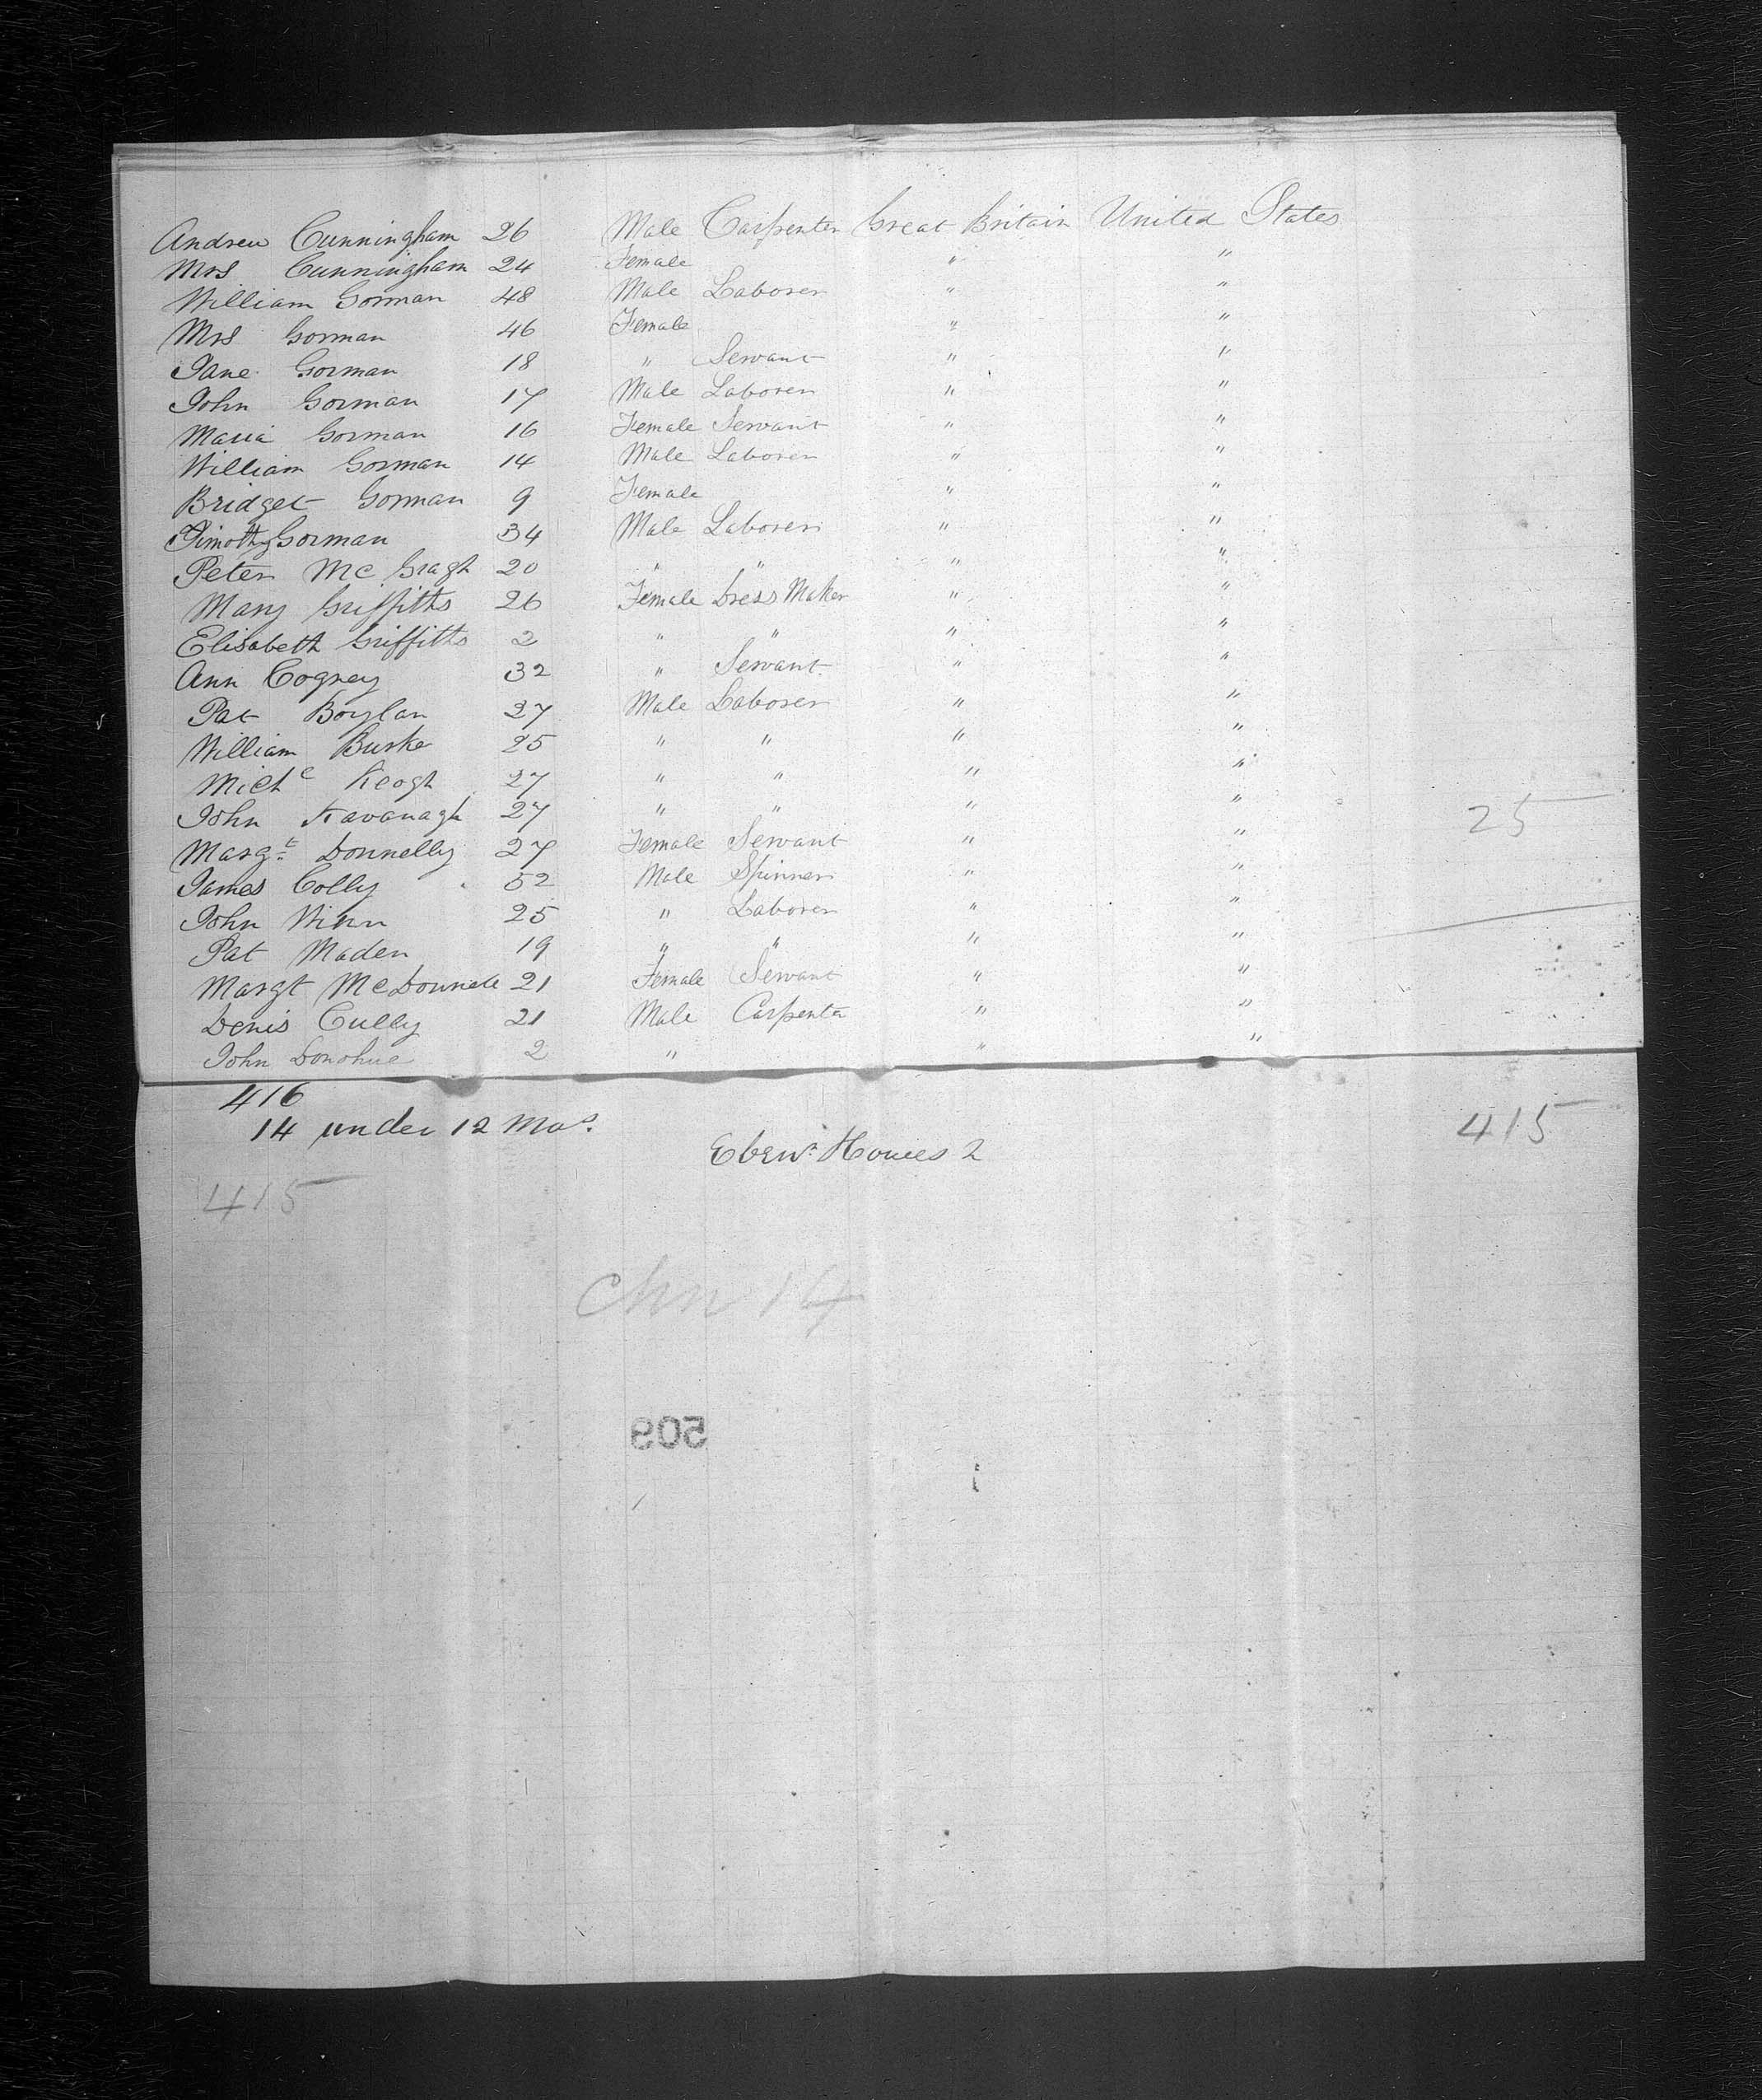 Andrew Cunningham 26 Male Carpenter Great Britain United States
Mrs Cunningham 24 Female " "
William Gorman 48 Male Laborer " "
Mrs Gorman 46 Female " "
Jane Gorman 18 " Servant " "
John Gorman 17 Male Laborer " "
Maria Gorman 16 Female Servant " "
William Gorman 14 Male Laborer " "
Bridget Gorman 9 Female " "
Timothy Gorman 34 Male Laborer " "
Peter McGragh 20 " " " "
Mary Griffiths 26 Female Dress Maker " "
Elisabeth Griffiths 2 " " " "
Ann Cogney 32 " Servant " "
Pat Boylan 27 Male Laborer " "
William Burke 25 " " " "
Mich Keogh 27 " " " "
John Kavanagh 27 " " " "
25
Margt Donnelly 27 Female Servant " "
James Colly 52 Male Spinner " "
John Winn 25 " Laborer " "
Pat Maden 19 " " " "
Margt McDonnell 21 Female Servant " "
Denis Cully 21 Male Carpenter " "
John Donohue 2 " " "
416
14 under 12 Mos. 415
Ebenr. Howes 2
415
Chn 14
509